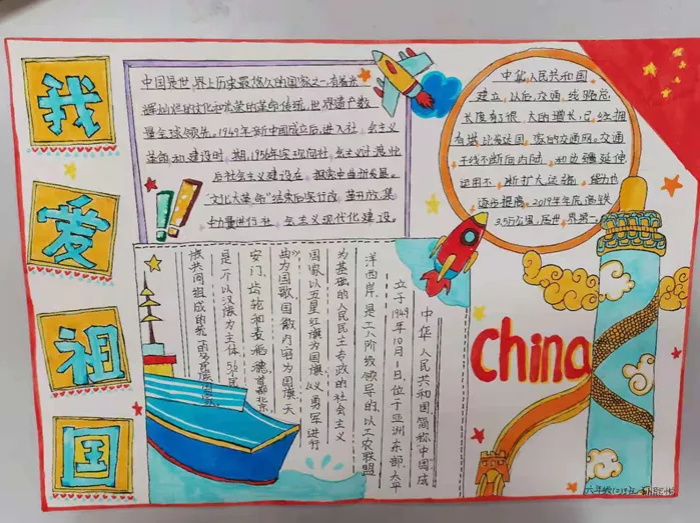 我爱祖国
中国是世界上历史最悠久的国家之一,有着光
辉灿烂的文化和光荣的革命传统,世界遗产数
量全球领先。1949年新中国成立后,进入社会主义
革命和建设时期,1956年实现向社会主义过渡,此
后社会主义建设在探索中曲折发展。
“文化大革命”结束后实行改革开放,集
中力量进行社会主义现代化建设。
中华人民共和国
建立以后,交通线路总
长度有了很大的增长,已经拥
有
国家的交通网。交通
干线不断向内陆和边疆延伸
运用不断扩大运输能力也
逐步提高。2019年底高铁
3.5万公里,居世界第一。
中华人民共和国,简称“中国”成
立于1949年10月1日,位于亚洲东部,太平
洋西岸,是工人阶级领导的,以工农联盟
为基础的人民民主专政的社会主义
国家,以五星红旗为国旗,义勇军进行
曲为国歌,国徽内容为国旗、天
安门、齿轮和麦稻穗,首都北京,
是一个以汉族为主体,56个民
族共同组成的
China
六年级